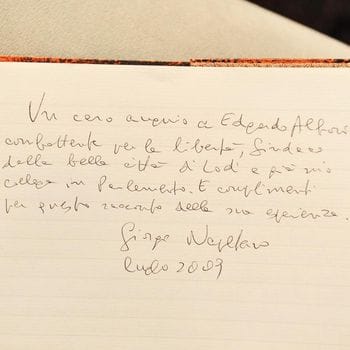 Un caro augurio a Edgardo Alboni
combattente per la libertà, Sindaco
della bella città di Lodi e già mio
collega in Parlamento. E complimenti
per questo racconto della sua esperienza.
Giorgio Napolitano
luglio 2009